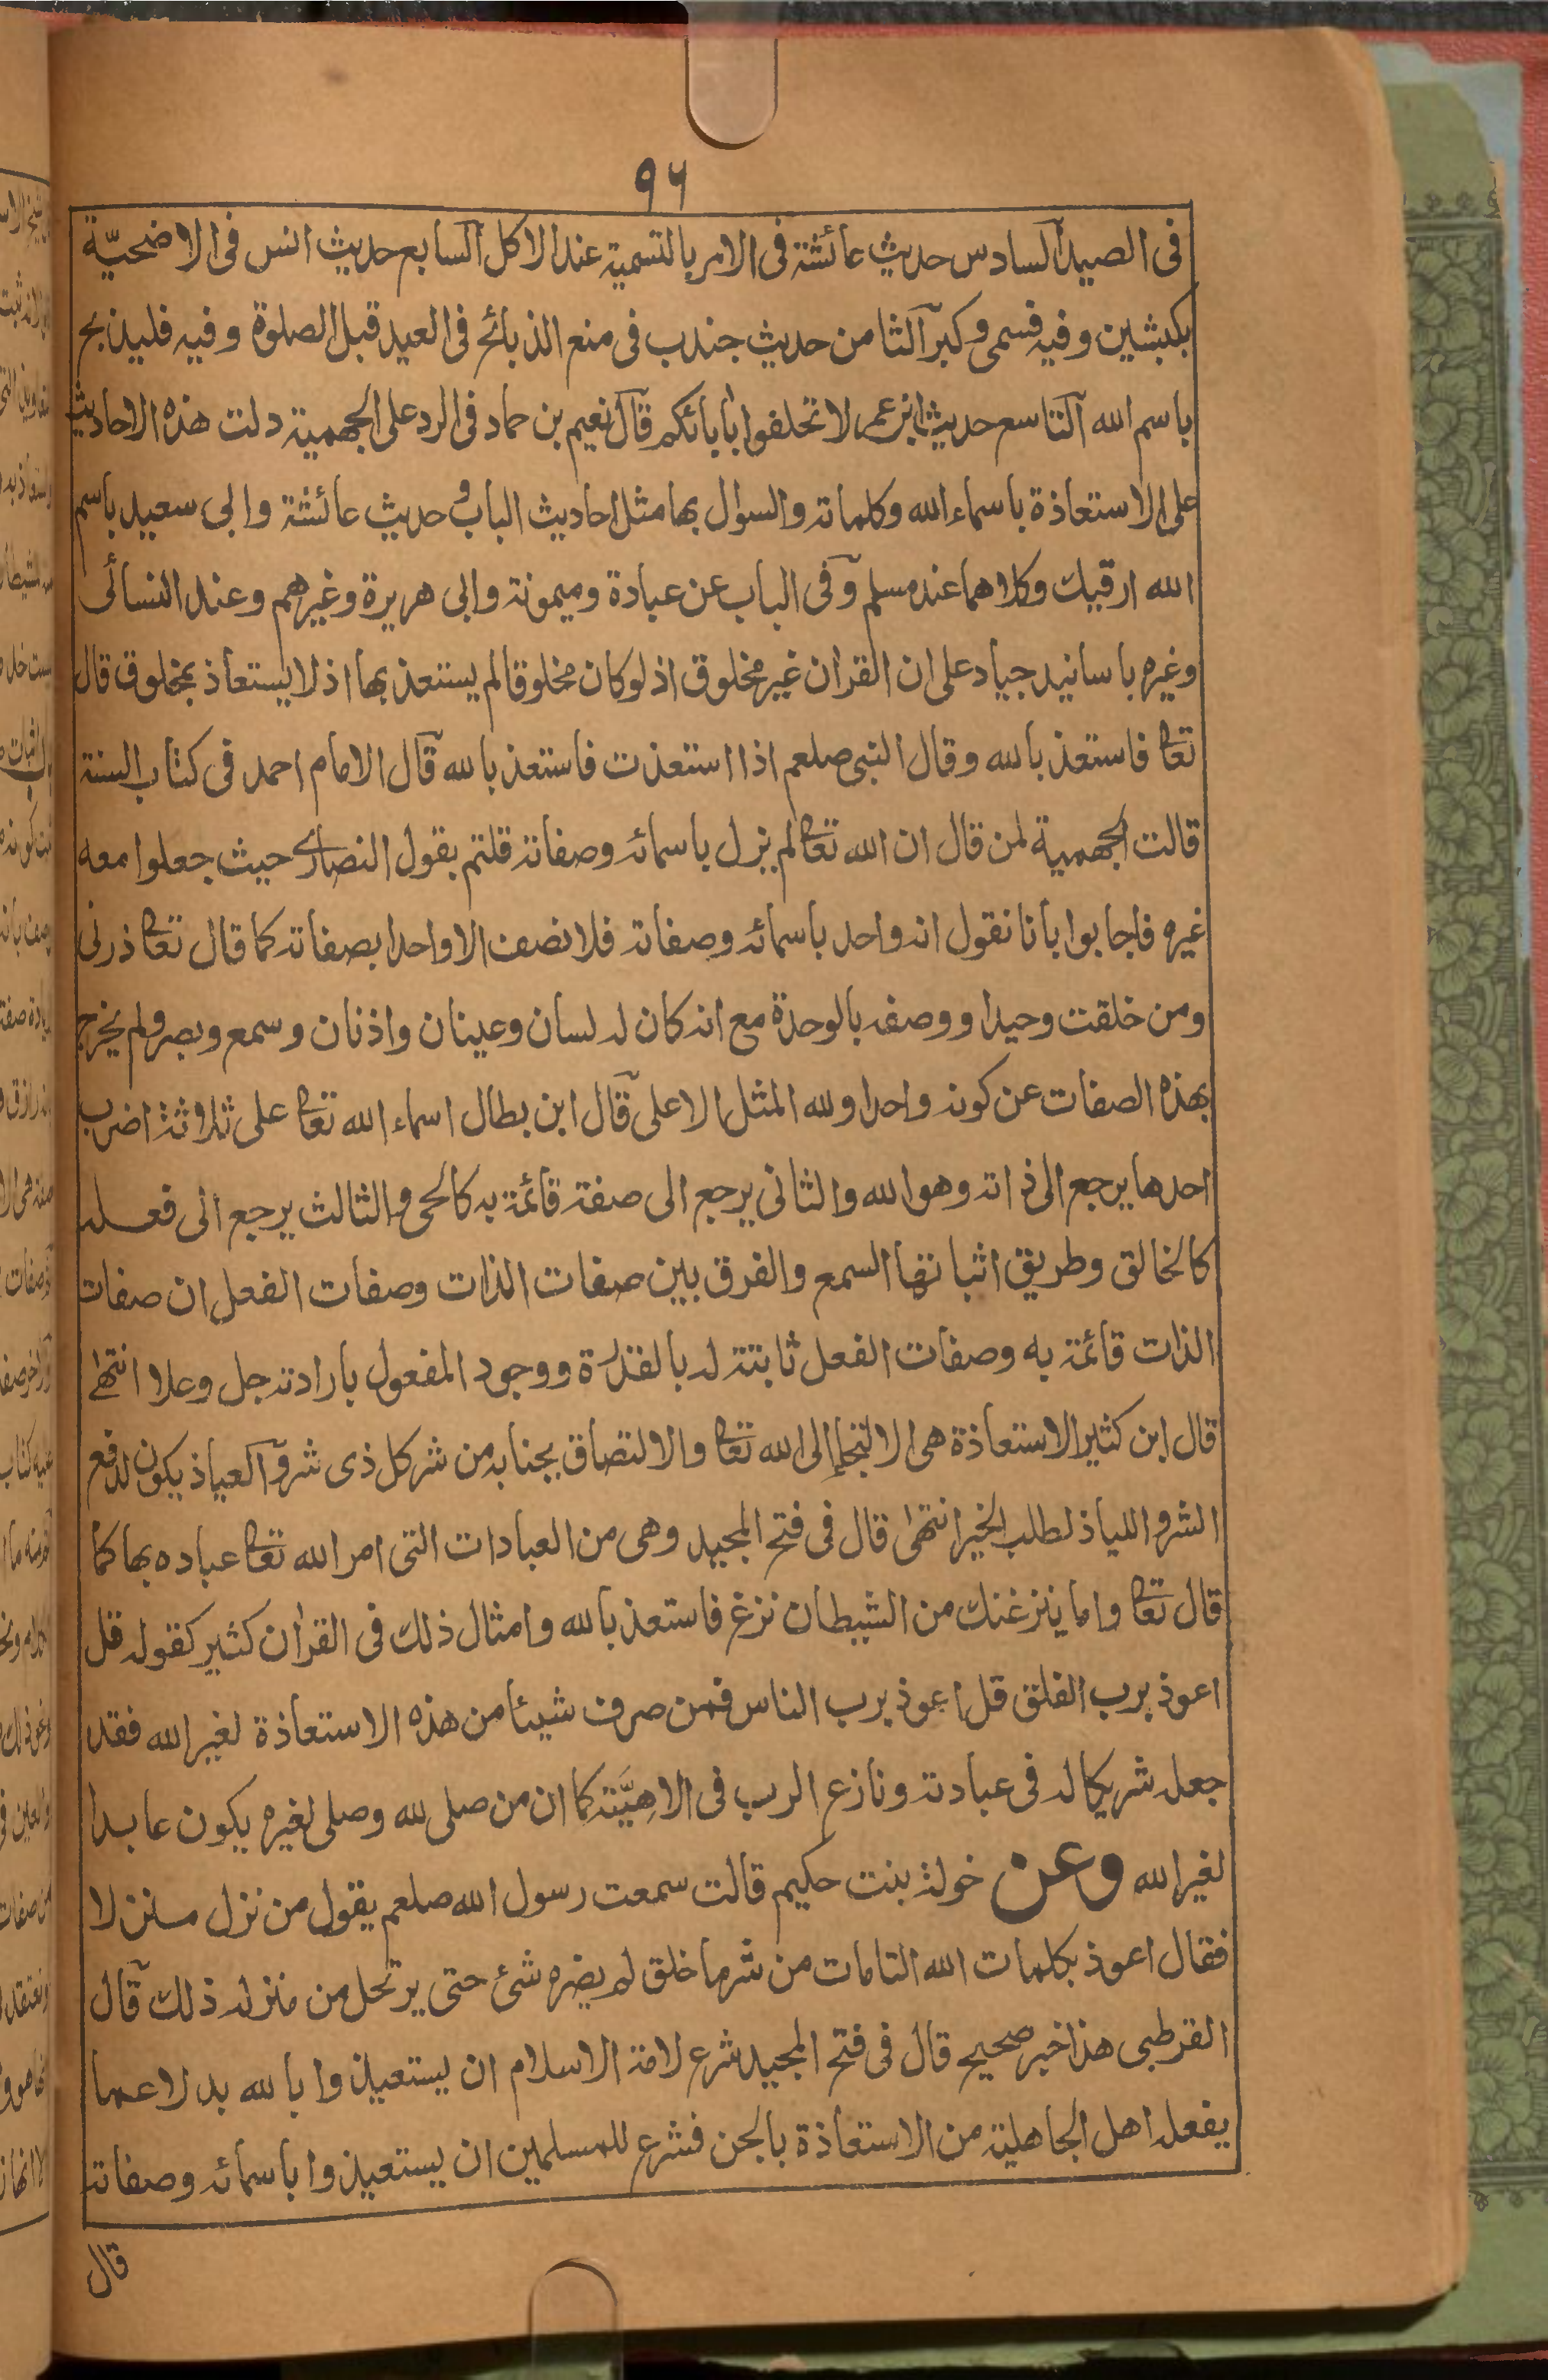 ٩٦
فى الصيد آلسادس حديث عائشة فى الامر بالتسمية عند الاكل آلسابع حديث انس فى الاضحيّة
بكبشين وفيه فسمى وكبر آلثامن حديث جندب فى منع الذبائح فى العيد قبل الصلوة وفيه فليذبح
باسم الله آلتاسع حديث ابن عمر لا تحلفوا بأبائكم قآل نعيم بن حماد فى الرد على الجهمية دلت هذه الاحاديث
على الاستعاذة باسماء الله وكلماته والسوال بها مثل احاديث الباب و حديث عائشة وابى سعيد باسم
الله ارقيك وكلاهما عند مسلم وآفى الباب عن عبادة وميمونة وابى هريرة وغيرهم وعند النسائى
وغيره باسانيد جياد على ان القران غير مخلوق اذ لوكان مخلوقا لم يستعذ بها اذ لا يستعاذ بمخلوق قال
تعا فاستعذ بالله وقال النبى صلعم اذا استعذت فاستعذ بالله قآل الامام احمد فى كتاب السنة
قالت الجهمية لمن قال ان الله تعا لم يزل باسمائه وصفاته قلتم بقول النصارى حيث جعلوا معه
غيره فاجابوا بانا نقول انه واحد باسمائه وصفاته فلا نصف الا واحدا بصفاته كما قال تعا ذرنى
ومن خلقت وحيدا ووصفه بالوحدة مع انه كان له لسان وعينان واذنان وسمع وبصر ولم يخرج
بهذه الصفات عن كونه واحدا ولله المثل الاعلى قآل ابن بطال اسماء الله تعا على ثلاثة اضرب
احدها يرجع الى ذاته وهو الله والثانى يرجع الى صفة قائمة به كالحى والثالث يرجع الى فعله
كالخالق وطريق اثباتها السمع والفرق بين صفات الذات وصفات الفعل ان صفات
الذات قائمة به وصفات الفعل ثابتة له بالقدرة ووجود المفعول بارادته جل وعلا انتهى
قال ابن كثير الاستعاذة هى الالتجاء الى الله تعا والالتصاق بجنابه من شر كل ذى شر وآلعياذ يكون لدفع
الشر واللياذ لطلب الخير انتهى قال فى فتح المجيد وهى من العبادات التى امر الله تعا عباده بها كما
قال تعا واما ينزغنك من الشيطان نزغ فاستعذ بالله وامثال ذلك فى القران كثير كقوله قل
اعوذ برب الفلق قل اعوذ برب الناس فمن صرف شيئا من هذه الاستعاذة لغير الله فقد
جعله شريكا له فى عبادته ونازع الرب فى الاهِيَّته كما ان من صلى لله وصلى لغيره يكون عابدا
لغير الله وعن خولة بنت حكيم قالت سمعت رسول الله صلعم يقول من نزل منزلا
فقال اعوذ بكلمات الله التامات من شر ما خلق لم يضره شئ حتى يرتحل من منزله ذلك قآل
القرطبى هذا خبر صحيح قال فى فتح المجيد شرع لامة الاسلام ان يستعيذوا بالله بدلا عما
يفعله اهل الجاهلية من الاستعاذة بالجن فشرع للمسلمين ان يستعيذوا باسمائه وصفاته
قال